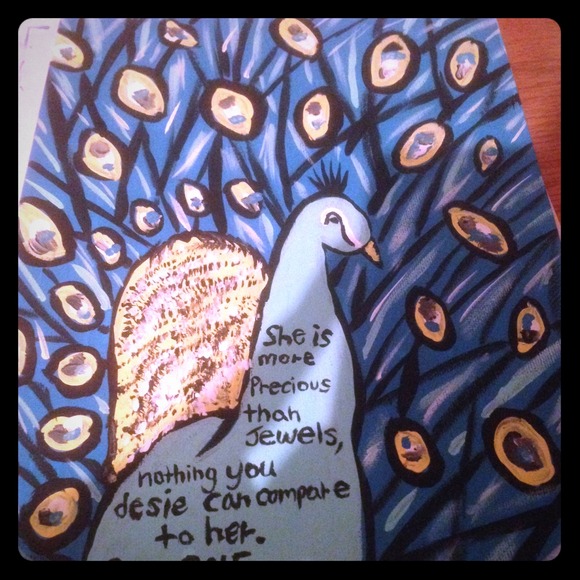 She is
more
Precious
than
Jewels,
nothing you
desie can compare
to her.